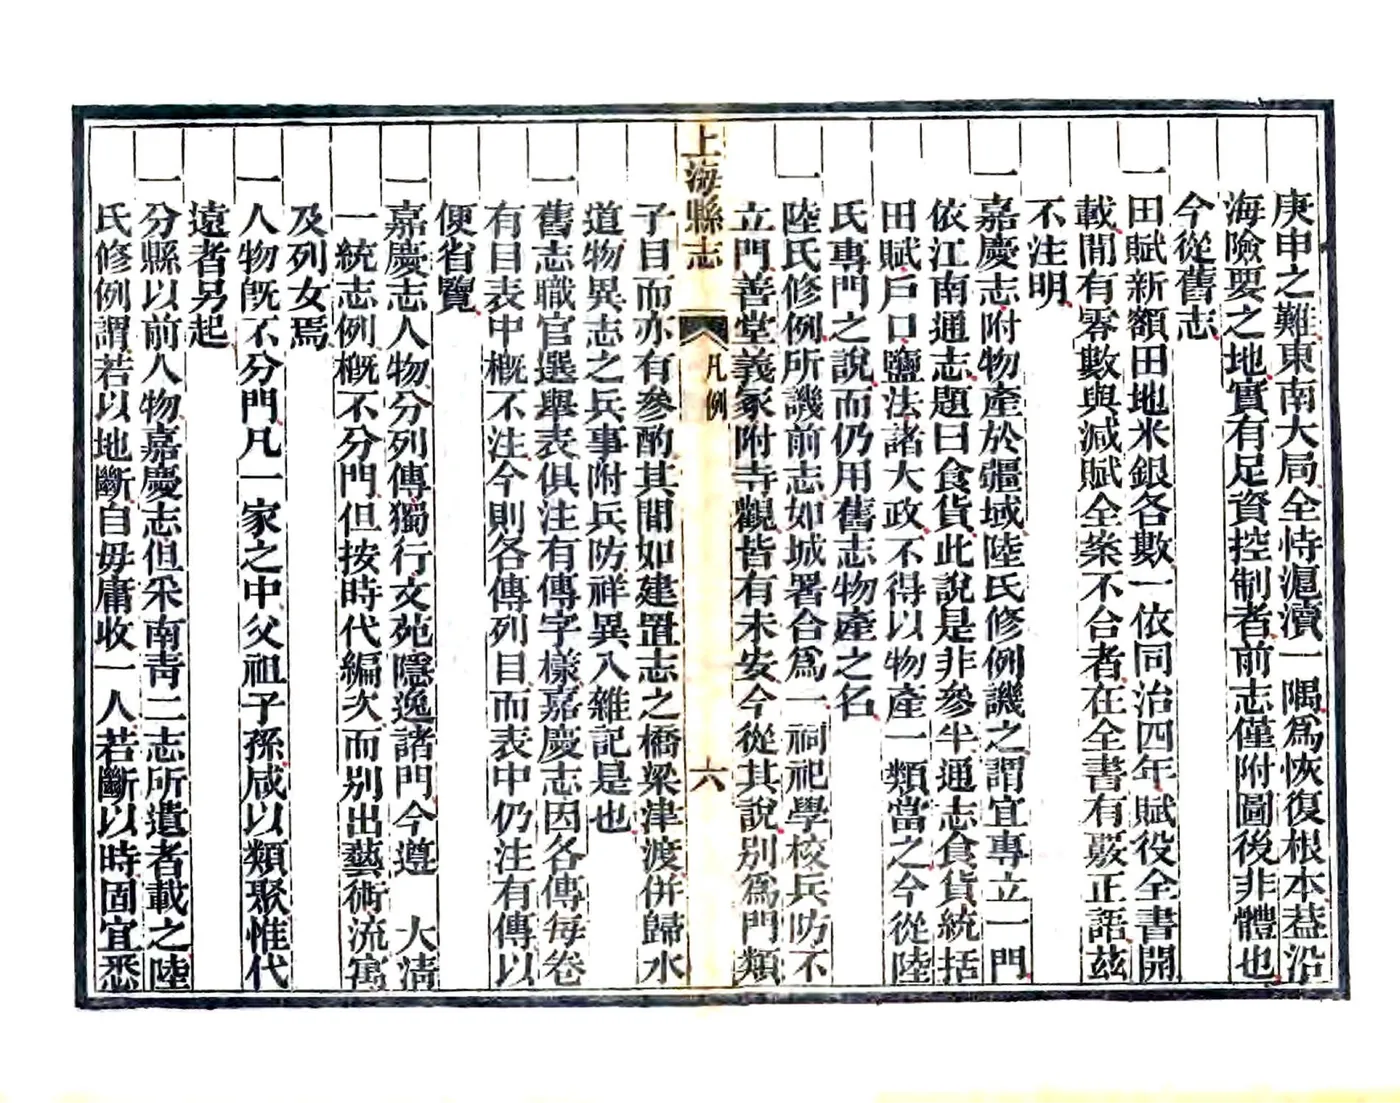 庚申之難東南大局全恃滬瀆一隅爲恢復根本葢沿
海險要之地實有足資控制者前志僅附圖後非體也
今從舊志
一田賦新額田地米銀各數一依同治四年賦役全書開
載閒有零數與減賦全案不合者在全書有覈正語茲
不注明
一嘉慶志附物產於疆域陸氏修例譏之謂宜專立一門
依江南通志題曰食貨此說是非參半通志食貨統括
田賦戶口鹽法諸大政不得以物產一類當之今從陸
氏專門之說而仍用舊志物產之名
一陸氏修例所譏前志如城署合爲一祠祀學校兵防不
立門善堂義冢附寺觀皆有未安今從其說別爲門類
上海縣志
凡例
六
子目而亦有參酌其閒如建置志之橋梁津渡併歸水
道物異志之兵事附兵防祥異入雜記是也
一舊志職官選舉表俱注有傳字樣嘉慶志因各傳每卷
有目表中概不注今則各傳列目而表中仍注有傳以
便省覽
一嘉慶志人物分列傳獨行文苑隱逸諸門今遵 大清
一統志例概不分門但按時代編次而別出藝術流寓
及列女焉
一人物旣不分門凡一家之中父祖子孫咸以類聚惟代
遠者另起
一分縣以前人物嘉慶志但采南靑二志所遺者載之陸
氏修例謂若以地斷自毋庸收一人若斷以時固宜悉